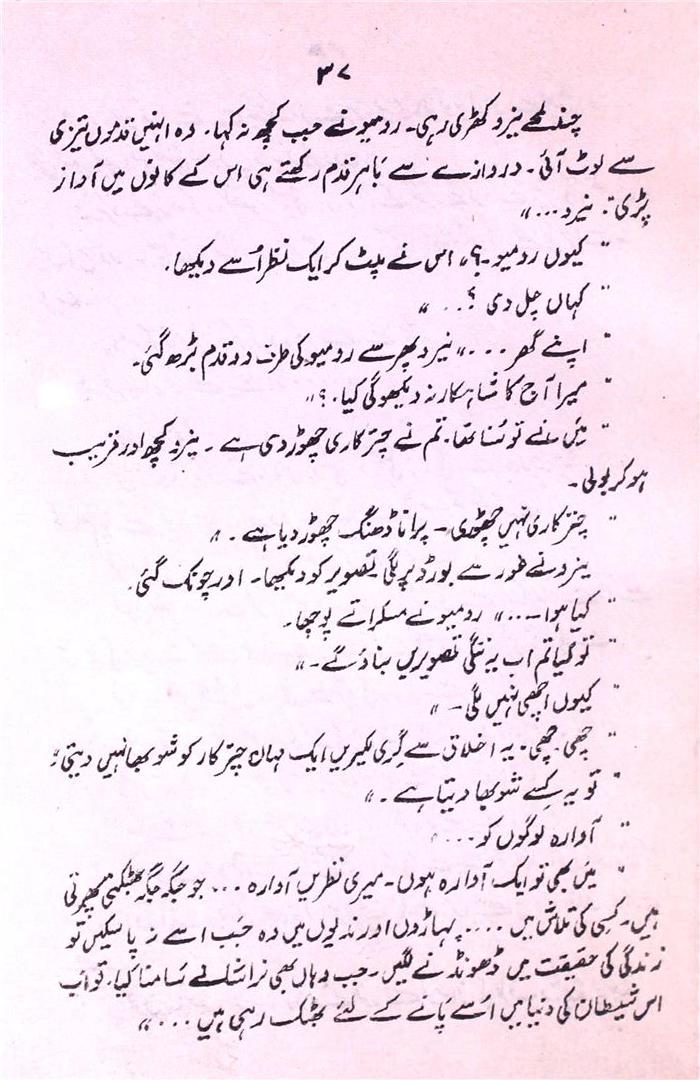 ۳۷
چند لمحے نیرد کھڑی رہی۔ ردمیو نے جب کچھ نہ کہا۔ وہ انہیں قدموں تیزی
سے لوٹ آئی۔ دروازے سے باہر قدم رکھتے ہی اس کے کانوں میں آواز
پڑی "۔ نیرد...."
" کیوں ردمیو۔؟" اس نے پلٹ کر ایک نظر اُسے دیکھا۔
" کہاں چل دی ؟... "
" اپنے گھر ...." نیرد پھر سے ردمیو کی طرف دو قدم بڑھ گئی۔
" میرا آج کا شاہکار نہ دیکھو گی کیا۔؟"
" میں نے تو سُنا تھا۔ تم نے چترکاری چھوڑ دی ہے ۔ نیرد کچھ اور قریب
ہو کر بولی۔
" چترکاری نہیں چھوڑی۔ پرانا ڈھنگ چھوڑ دیا ہے۔"
نیرد نے غور سے بورڈ پر لگی تصویر کو دیکھا۔ اور چونک گئی۔
" کیا ہوا۔..." ردمیو نے مسکراتے پوچھا۔
" تو کیا تم اب یہ ننگی تصویریں بناؤ گے۔"
" کیوں اچھی نہیں لگی۔ "
" چھی۔ چھی۔ یہ اخلاق سے گری لکیریں ایک مہان چترکار کو شوبھا نہیں دیتی"
" تو یہ کسے شوبھا دیتا ہے۔"
" آوارہ لوگوں کو....
" میں بھی تو ایک آوارہ ہوں۔ میری نظریں آوارہ ... جو جگہ جگہ بھٹکتی پھرتی
ہیں۔ کسی کی تلاش میں .... پہاڑوں اور ندیوں میں وہ جب اسے نہ پا سکیں تو
زندگی کی حقیقت میں ڈھونڈنے لگیں۔ جب وہاں بھی نراشا نے سامنا کیا۔ تو اب
اس شیطان کی دنیا میں اُسے پانے کے لئے بھٹک رہی ہیں ...."